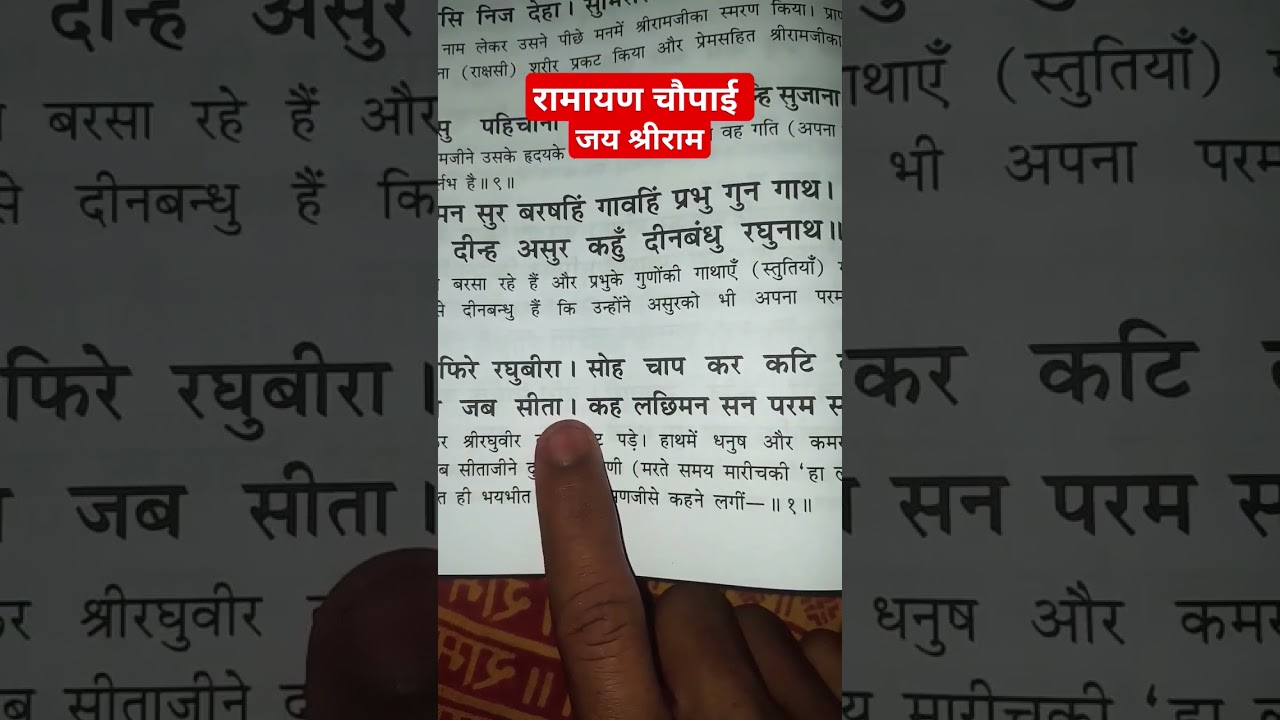 सि निज देहा।
नाम लेकर उसने पीछे मनमें श्रीरामजीका स्मरण किया।
(राक्षसी) शरीर प्रकट किया और प्रेमसहित श्रीरामजीका
रामायण चौपाई
जय श्रीराम
सुजाना
पहिचाना
वह गति (अपना
मजीने उसके हृदयके
है॥९॥
सुर बरषहिं गावहिं प्रभु गुन गाथ।
दीन्ह असुर कहुँ दीनबंधु रघुनाथ॥
बरसा रहे हैं और प्रभुके गुणोंकी गाथाएँ (स्तुतियाँ)
दीनबन्धु हैं कि उन्होंने असुरको भी अपना परम
फिरे रघुबीरा। सोह चाप कर कटि
जब सीता। कह लछिमन सन परम
श्रीरघुवीर पड़े। हाथमें धनुष और कमर
सीताजीने (मरते समय मारीचकी ‘हा
ही भयभीत मणजीसे कहने लगीं—॥१॥